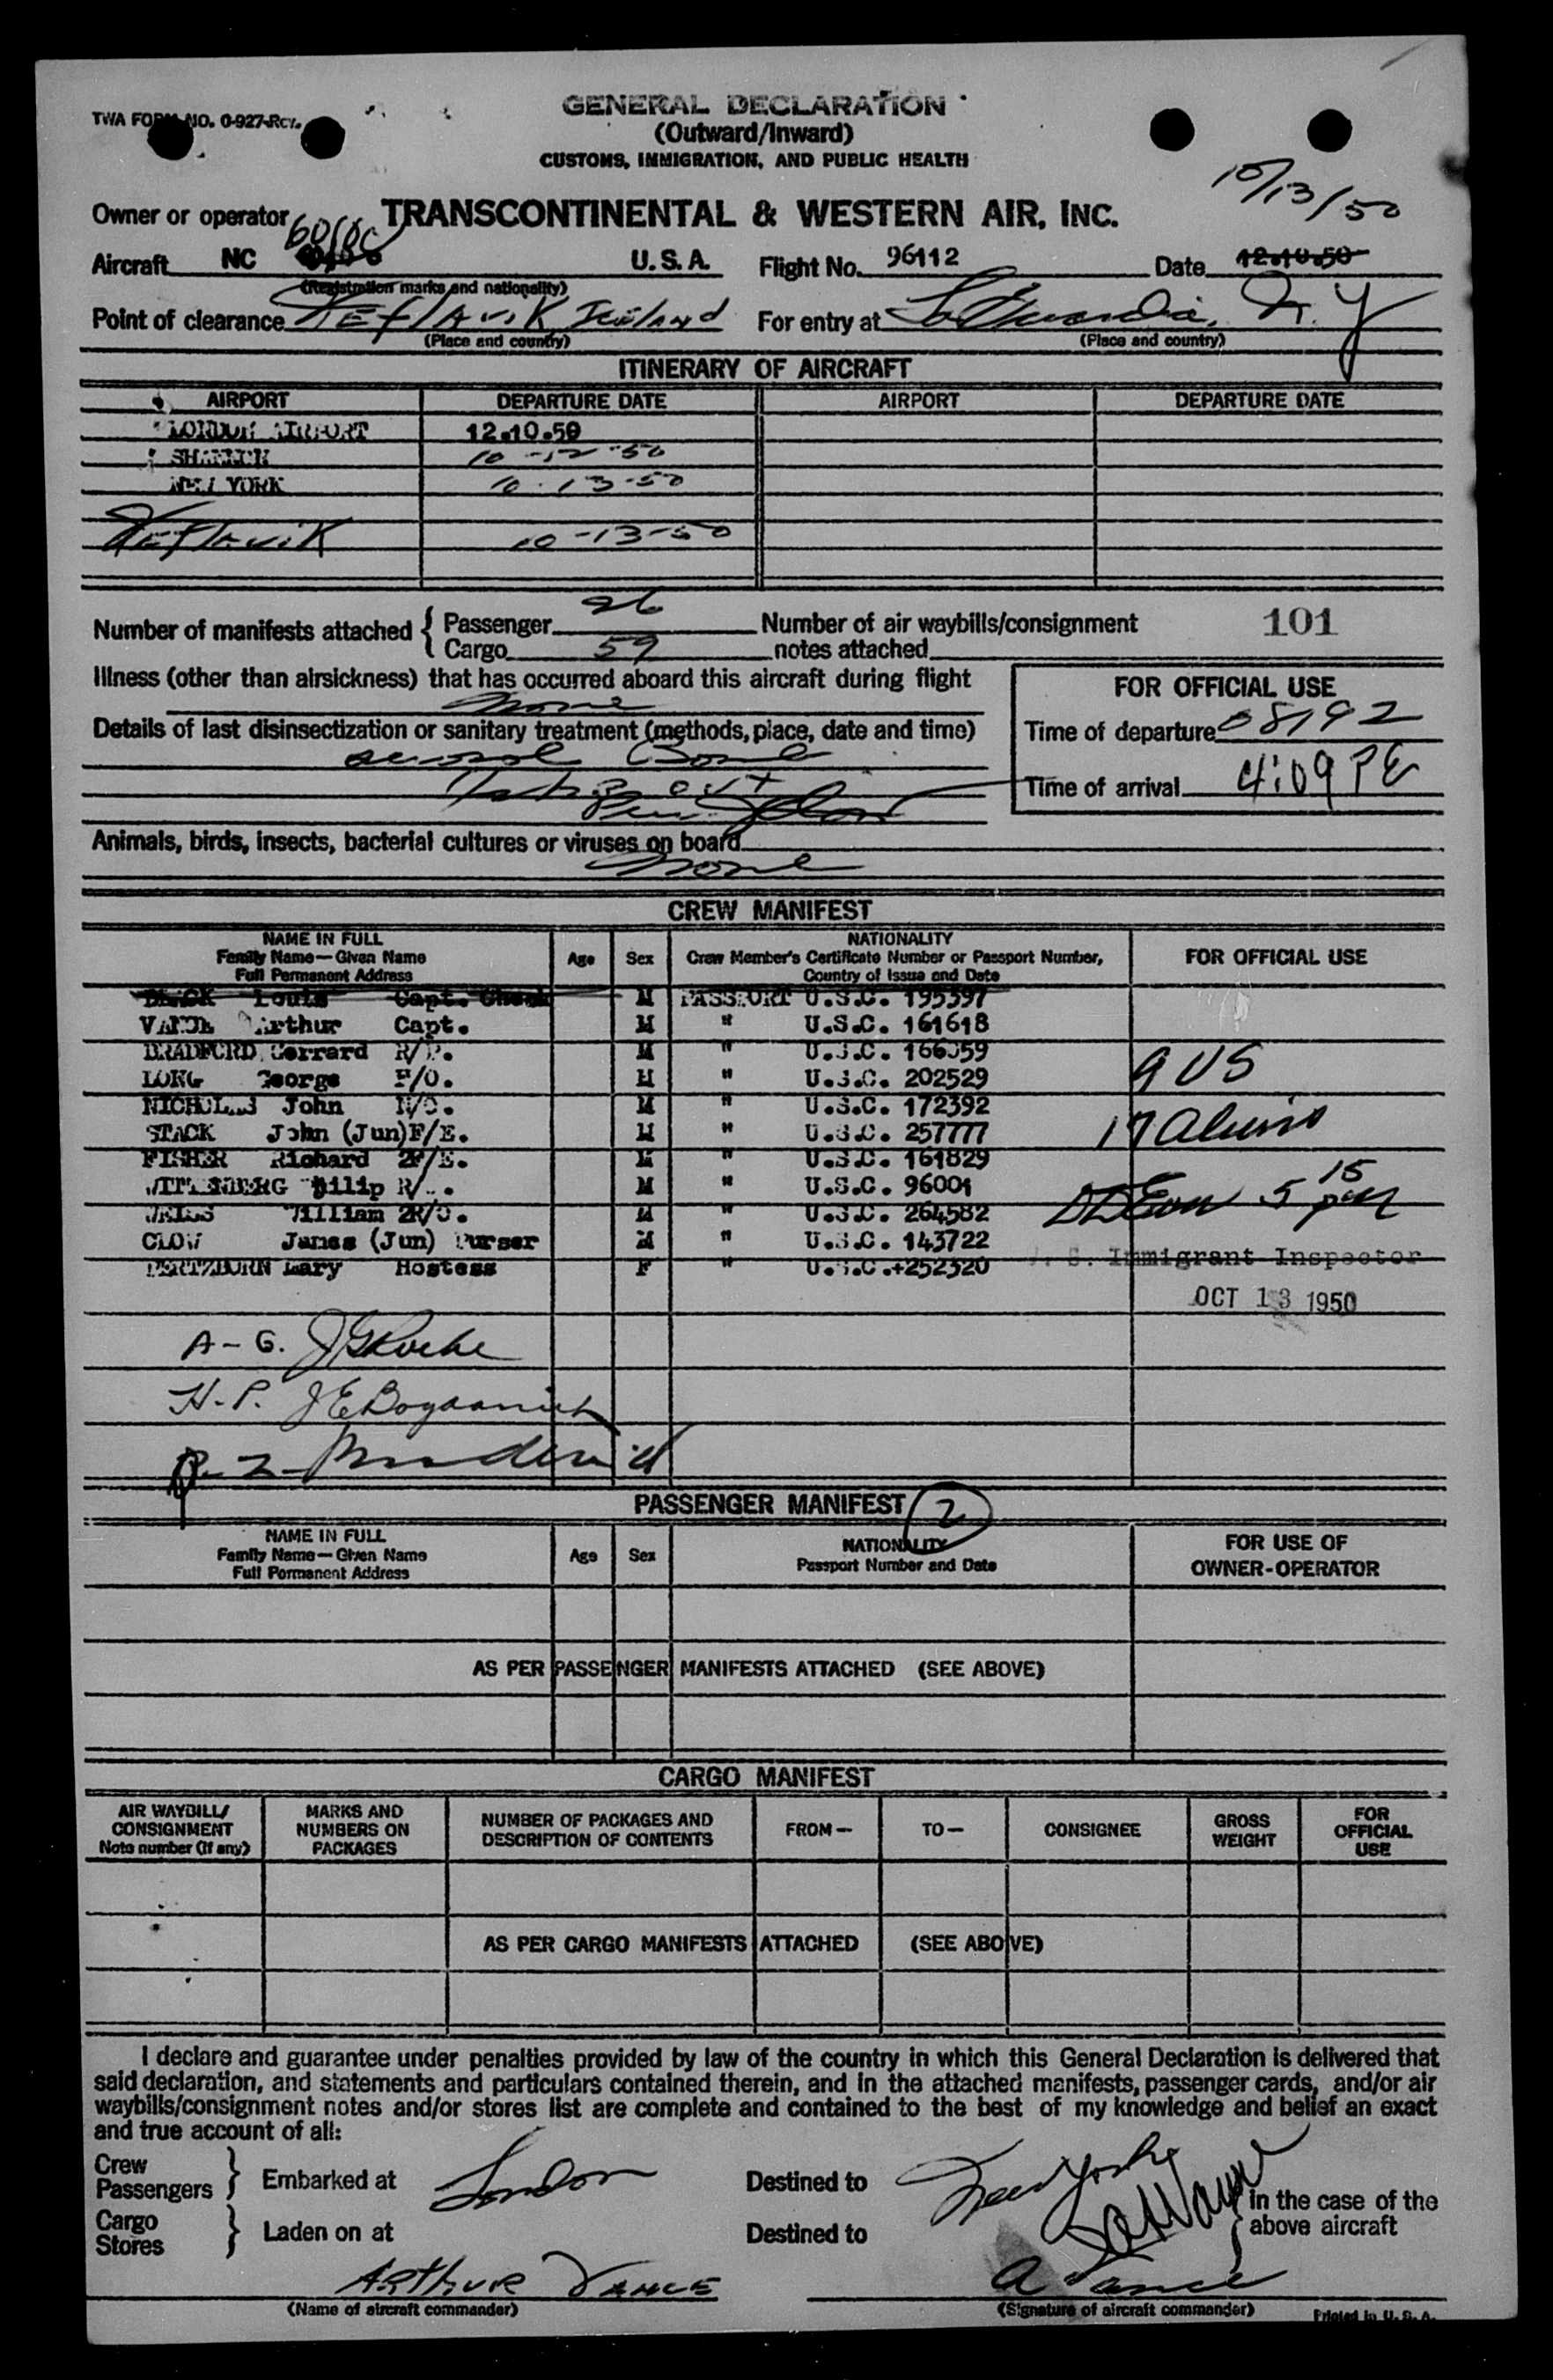 GENERAL DECLARATION
TWA FORM NO. 0-927-Rev.
(Outward/Inward)
CUSTOMS, IMMIGRATION, AND PUBLIC HEALTH
10/13/50
Owner or operator TRANSCONTINENTAL & WESTERN AIR, INC.
Aircraft NC U.S.A. Flight No. 96112 Date 12.10.50
(Registration marks and nationality)
Point of clearance Keflavik Iceland For entry at LaGuardia, N.Y
(Place and country) (Place and country)
ITINERARY OF AIRCRAFT
AIRPORT DEPARTURE DATE AIRPORT DEPARTURE DATE
LONDON AIRPORT 12.10.50
SHANNON 10-12-50
NEW YORK 10-13-50
Keflavik 10-13-50
Number of manifests attached { Passenger 26 Number of air waybills/consignment 101
Cargo 59 notes attached
Illness (other than airsickness) that has occurred aboard this aircraft during flight
None
FOR OFFICIAL USE
Details of last disinsectization or sanitary treatment (methods, place, date and time)
Time of departure 0819Z
aerosol Bomb
Time of arrival 4:09 PE
Animals, birds, insects, bacterial cultures or viruses on board
None
CREW MANIFEST
NAME IN FULL
Family Name—Given Name
Full Permanent Address
Age Sex
NATIONALITY
Crew Member's Certificate Number or Passport Number,
Country of Issue and Date
FOR OFFICIAL USE
Louis Capt. Check M PASSPORT U.S.C. 195397
VANCE Arthur Capt. M " U.S.C. 161618
BRADFORD Gerrard R/P. M " U.S.C. 166359
LONG George F/O. M " U.S.C. 202529
9 US
NICHOLAS John N/O. M " U.S.C. 172392
STACK John (Jun) F/E. M " U.S.C. 257777
17 Aliens
FISHER Richard 2F/E. M " U.S.C. 161829
WITTENBERG Philip R/O. M " U.S.C. 96001
5 15 pm
William 2R/O. M " U.S.C. 264582
CLOW James (Jun) Purser M " U.S.C. 143722
U. S. Immigrant Inspector
Mary Hostess F " U.S.C.+252320
OCT 13 1950
A-G. J G Roche
H-P. J E Bogdanich
PASSENGER MANIFEST 2
NAME IN FULL
Family Name—Given Name
Full Permanent Address
Age Sex
NATIONALITY
Passport Number and Date
FOR USE OF
OWNER-OPERATOR
AS PER PASSENGER MANIFESTS ATTACHED (SEE ABOVE)
CARGO MANIFEST
AIR WAYBILL/
CONSIGNMENT
Note number (if any)
MARKS AND
NUMBERS ON
PACKAGES
NUMBER OF PACKAGES AND
DESCRIPTION OF CONTENTS
FROM—
TO—
CONSIGNEE
GROSS
WEIGHT
FOR
OFFICIAL
USE
AS PER CARGO MANIFESTS ATTACHED (SEE ABOVE)
I declare and guarantee under penalties provided by law of the country in which this General Declaration is delivered that
said declaration, and statements and particulars contained therein, and in the attached manifests, passenger cards, and/or air
waybills/consignment notes and/or stores list are complete and contained to the best of my knowledge and belief an exact
and true account of all:
Crew
Passengers } Embarked at London Destined to New York
Cargo
Stores } Laden on at Destined to
} in the case of the
above aircraft
ARTHUR VANCE A Vance
(Name of aircraft commander) (Signature of aircraft commander) Printed in U. S. A.